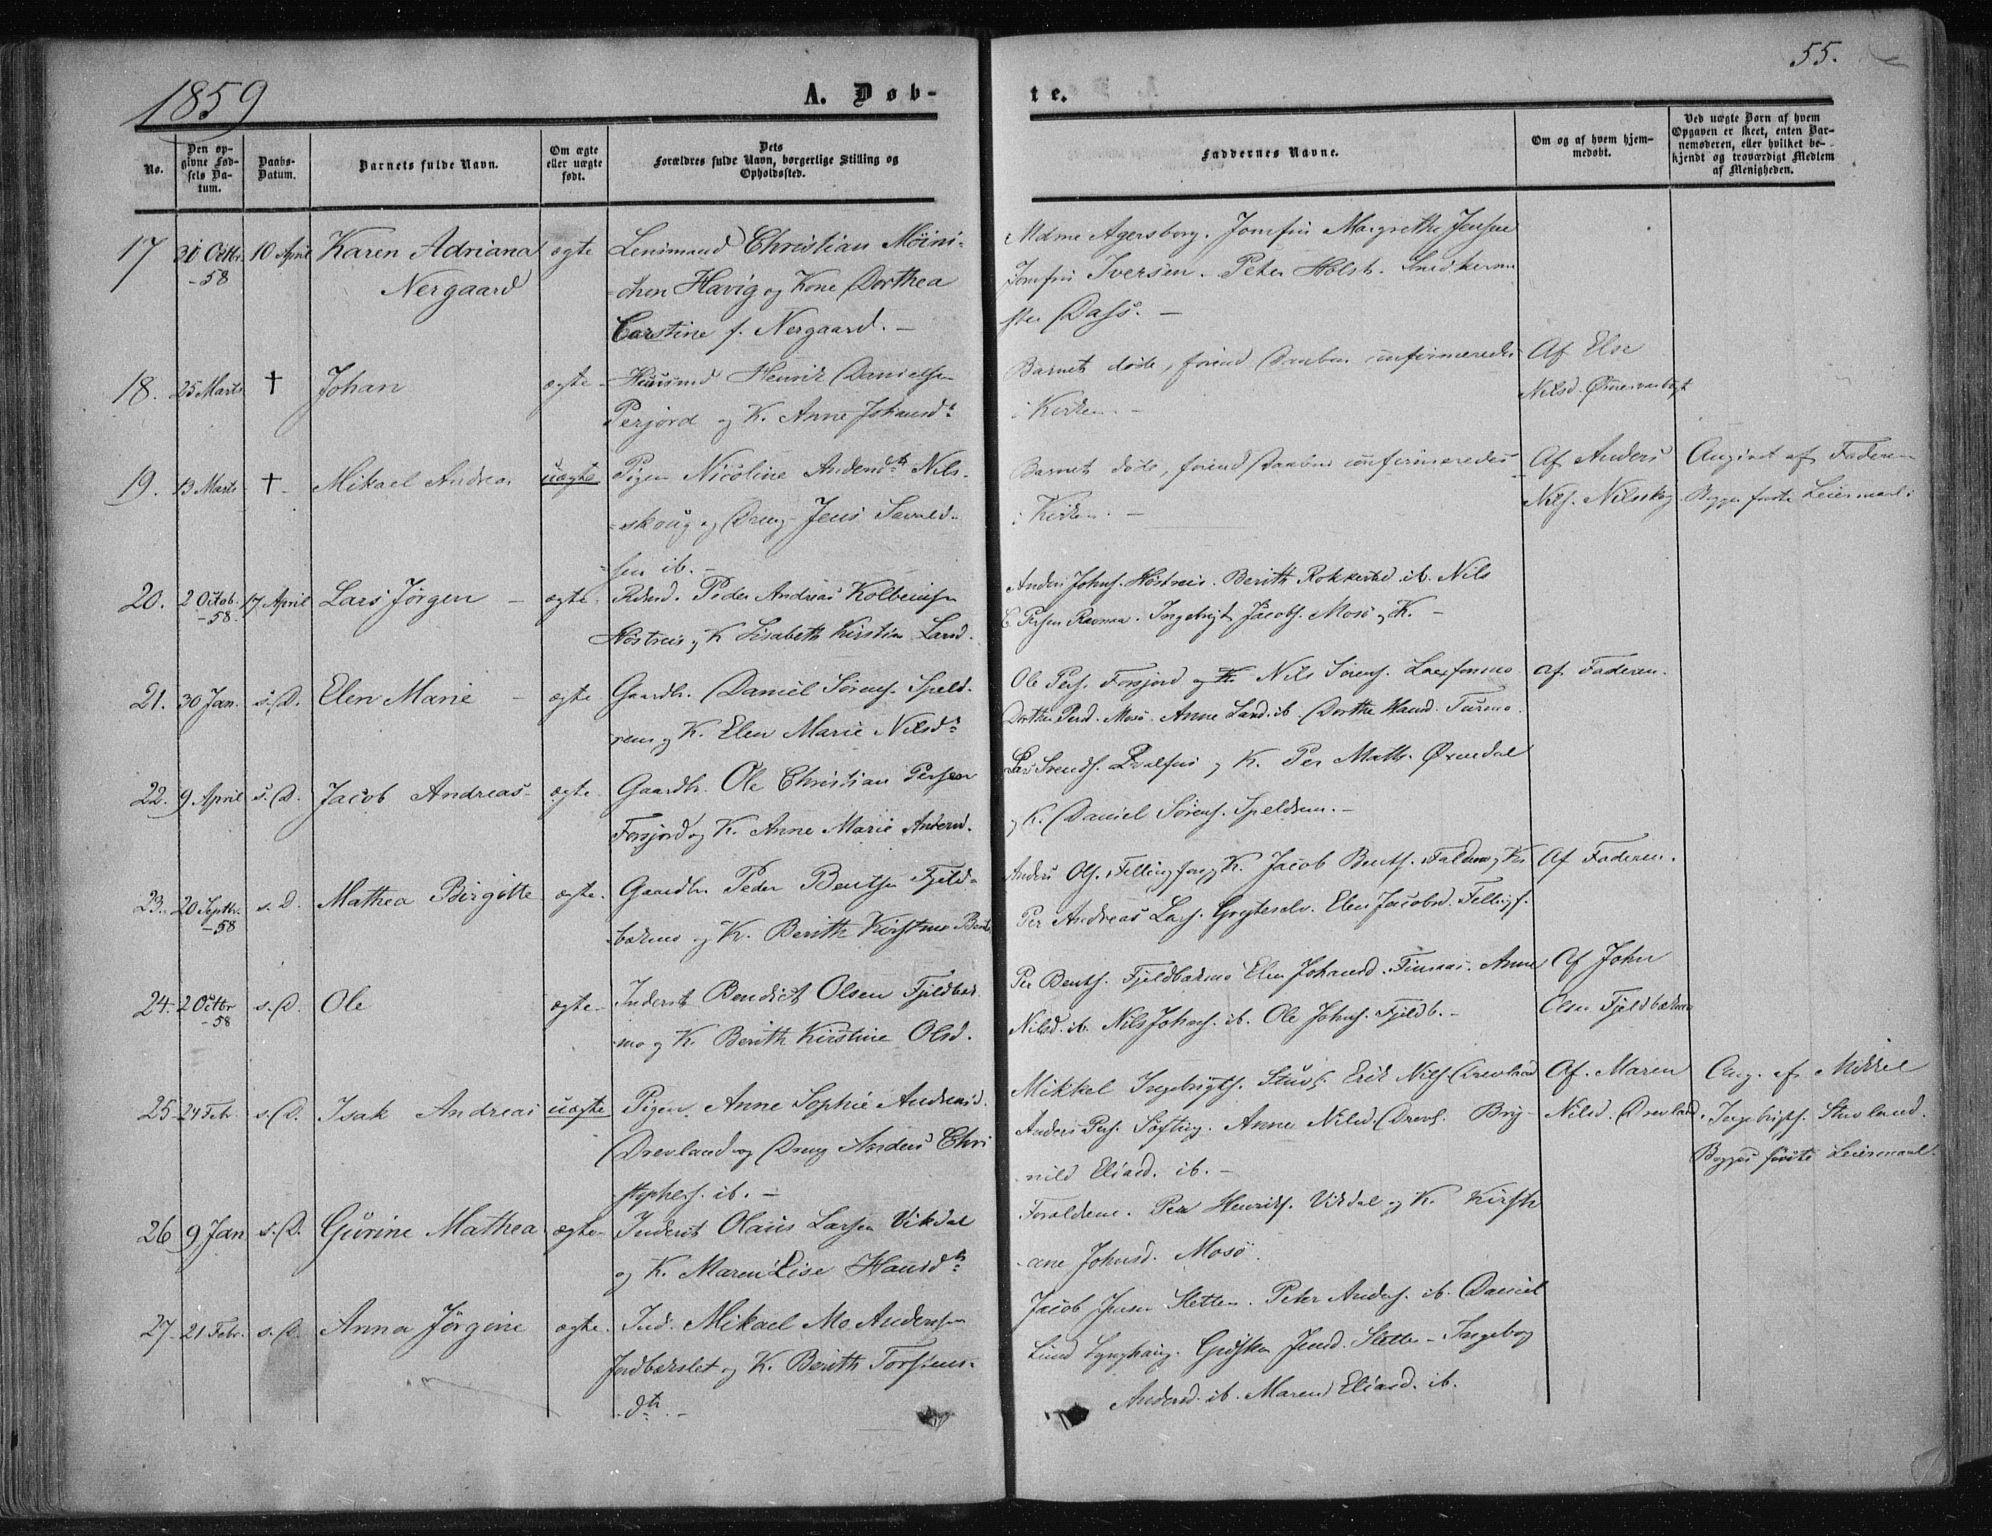 1859
A. Døb-
te.
55.
No.
Den op-
givne Fød-
sels Da-
tum.
Daabs-
Datum.
Barnets fulde Navn.
Om ægte
eller uægte
født.
Dets
Forældres fulde Navn, borgerlige Stilling og
Opholdssted.
Faddernes Navne.
Om og af hvem hjem-
medøbt.
Ved uægte Børn af hvem
Opgaven er skeet, enten Bar-
nemoderen, eller hvilket be-
kjendt og troværdigt Medlem
af Menigheden.
17 31 Octbr. 10 April Karen Adriana ægte Lensmand Christian Møini-
-58 Nergaard -chen Havig og Kone Dorthea
Carstine f. Nergaard. -
Mdme Agersborg. Jomfru Margrethe Jensen
Jomfru Iversen. Peter Holst. Snedkerme
ster Dass. -
18. 25 Marts † Johan ægte - Huusmd Henrik Danielsen
Perjord og K. Anne Johansd.
Barnet døde, førend Daaben confirmeredes
i Kirken. -
Af Else
Nilsd.
19. 13 Marts † - Mikael Andreas uægte Pigen Nicoline Andersdt. Nils-
-skoug og Dreng Jens
-sen ib. -
Barnet døde, førend Daaben confirmeredes
i Kirken. -
Af Anders
Nils. Nilsskog
Angivet af Faderen
Begges første Leiermaal
20. 2 Octob. 17 April Lars Jörgen - ægte. Peder Andreas Kolbeinsen
-58. Høstreis og K Lisabeth Kirstine Larsd.
Anders Johns. Høstreis. Berith ib. Nils
Persen Ingebrigt Jacobs. Mosø og K. -
21. 30 Jan. s. D. Elen Marie - ægte Gaardbr. Daniel Sørens. Speld-
rem og K. Elen Marie Nilsd.
Ole Pers. Forsjord og K. Nils Sørens.
Dorthe Persd. Mosø. Anne Larsd. ib. Dorthe Hansd. Turmo.
af Faderen.
22. 9 April s. D. Jacob Andreas - ægte. Gaardbr. Ole Christian Persen
Forsjord og K. Anne Marie Andersd.
Lars Svends. og K. Per Maths. Øxendal
og K. Daniel Sørens. Speldrem. -
23. 20 Septbr. s. D. Mathea Birgitte ægte. Gaardbr. Peder Bentsen Fjeld-
-58 -bækmo og K. Berith Kirstine
Anders Ols. og K. Jacob Bents.
Per Andreas Lars. Elen Jacobsd.
Af Faderen.
24. 2 Octbr s. D. Ole ægte - Inderst Bendict Olsen Fjeldbæk
-58 -mo og K. Berith Kirstine Olsd.
Per Bents. Fjeldbækmo Elen Johansd. Finnaas. Anne
Nilsd. ib. Nils Johns. ib. Ole Johns. Fjeldb. -
Af John
Olsen Fjeldbækmo
25. 24 Febr. s. D. Isak Andreas uægte Pigen Anne Sophie Andreasd.
Drevland og Dreng Anders Chri
stophers. ib. -
Mikkel Ingebrigts. Erik Nils. Drevland
Anders Pers. Anne Nilsd. Drevl. Bry-
nild Eliasd. ib. -
Af Maren
Nilsd. Drevland.
Ang. af Mikkel
Ingebrigts.
Begges første Leiermaal.
26 9 Jan s. D. Gurine Mathea ægte - Inderst Olaus Larsen Vikdal
og K. Maren Lise Hansdt.
Forældrene. Per Henriks. Vikdal og K. Kirsti
ane Johnsd. Mosø.
27. 21 Febr. s. D. Anna Jörgine ægte. Ind. Mikael Mo Andersen
Indbækslet og K. Berith Torstens-
dt. -
Jacob Jensen Sletten. Peter Anders. ib. Daniel
Lund Jensd. Slette - Ingeborg
Andersd. ib. Maren Eliasd. ib.